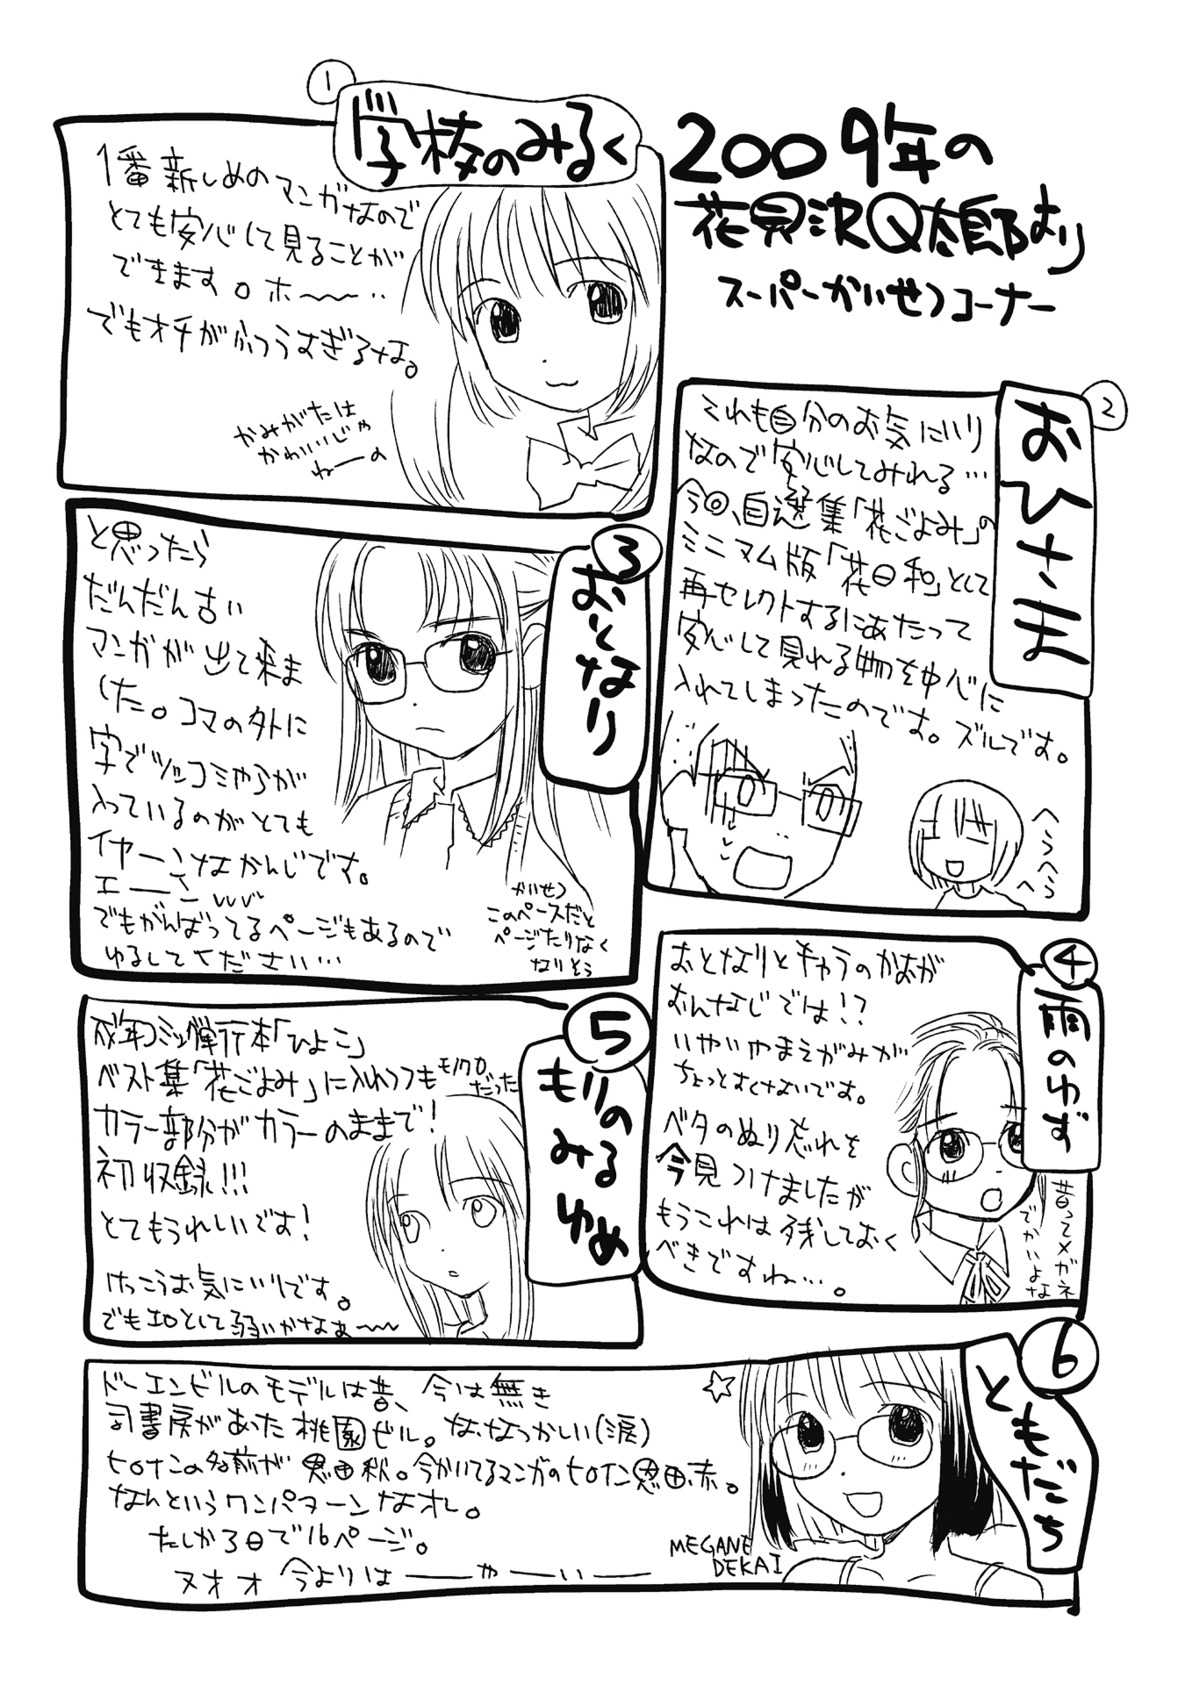 2009年の
花見沢Q太郎より
スーパーかいせつコーナー
1
学校のみるく
1番新しめのマンガなので
とても安心して見ることが
できます。ホ〜〜‥
でもオチがふつうすぎるな。
かみがたは
かわいいじゃ
ねーの
2
おひさま
それも自分のお気にいり
なので安心してみれる…
今回、自選集「花ごよみ」の
ミニマム版「花日和」として
再セレクトするにあたって
安心して見れる物を中心に
入れてしまったのです。ズルです。
へらへら
へ
3
おとなり
と思ったら
だんだん古い
マンガが出て来ま
した。コマの外に
字でツッコミやらが
入っているのがとても
イヤーンなかんじです。
エーン
でもがんばってるページもあるので
ゆるしてください…
かいせつ
このペースだと
ページたりなく
なりそう
4
雨のゆず
おとなりとキャラのかおが
おんなじでは!?
いやいやまえがみが
ちょっとすくないです。
ベタのぬり忘れを
今見つけましたが
もうこれは残しておく
べきですね〜…。
昔ってメガネ
でかいよな
5
もりの
みる
ゆめ
成年コミック単行本「ひよこ」
ベスト集「花ごよみ」に入れつつもモノクロ
だった
カラー部分がカラーのままで!
初収録!!!
とてもうれしいです!
けっこうお気にいりです。
でもエロとして弱いかなぁ〜〜
6
ともだち
ドーエンビルのモデルは昔、今は無き
司書房があった桃園ビル。ななつかしい(涙)
ヒロインの名前が恩田秋。今かいてるマンガのヒロイン恩田赤。
なんというワンパターンなオレ。
たしか3日で16ページ。
ヌオオ 今よりはーーやーいーー
MEGANE
DEKAI